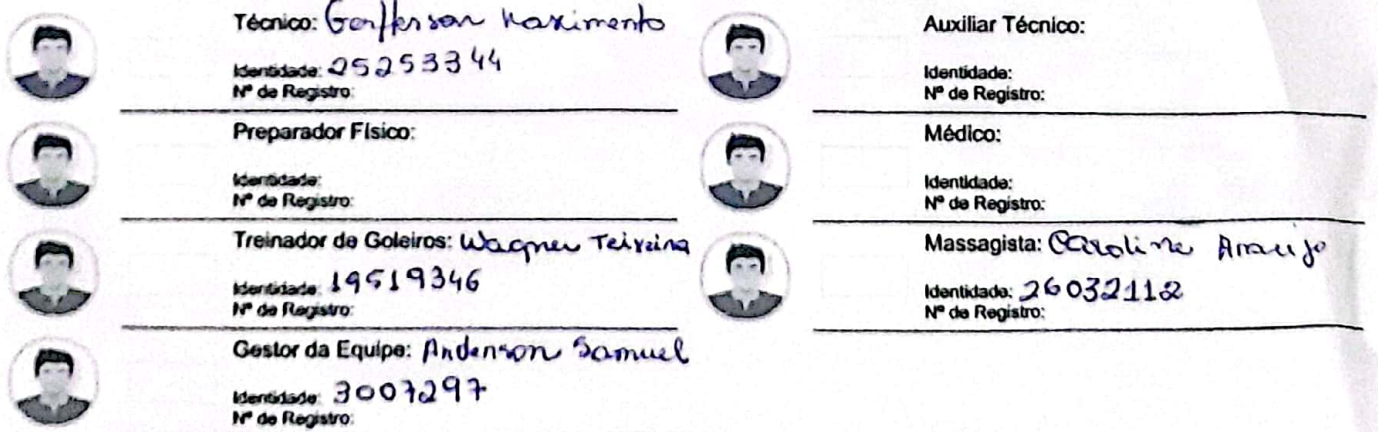 Técnico: Gerfferson Naximento
Identidade: 25253344
Nº de Registro:
Preparador Físico:
Identidade:
Nº de Registro:
Treinador de Goleiros: Wagner Teixeira
Identidade: 19519346
Nº de Registro:
Gestor da Equipe: Anderson Samuel
Identidade: 3007297
Nº de Registro:
Auxiliar Técnico:
Identidade:
Nº de Registro:
Médico:
Identidade:
Nº de Registro:
Massagista: Caroline Araujo
Identidade: 26032112
Nº de Registro: